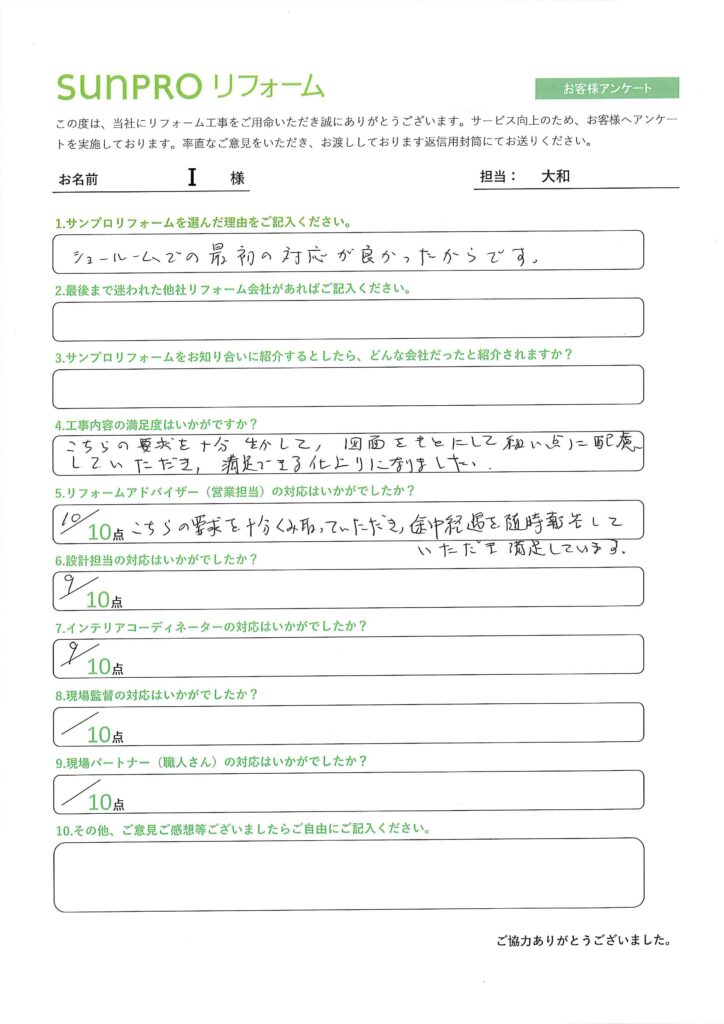 SUNPRO リフォーム
お客様アンケート
この度は、当社にリフォーム工事をご用命いただき誠にありがとうございます。サービス向上のため、お客様へアンケー
トを実施しております。率直なご意見をいただき、お渡ししております返信用封筒にてお送りください。
お名前 I 様 担当： 大和
1.サンプロリフォームを選んだ理由をご記入ください。
ショールームでの最初の対応が良かったからです。
2.最後まで迷われた他社リフォーム会社があればご記入ください。
3.サンプロリフォームをお知り合いに紹介するとしたら、どんな会社だったと紹介されますか？
4.工事内容の満足度はいかがですか？
こちらの要求を十分生かして、図面をもとにして細い点に配慮
していただき、満足できる仕上りになりました。
5.リフォームアドバイザー（営業担当）の対応はいかがでしたか？
10／10点 こちらの要求を十分くみ取っていただき、途中経過を随時報告して
いただき満足しています。
6.設計担当の対応はいかがでしたか？
9／10点
7.インテリアコーディネーターの対応はいかがでしたか？
9／10点
8.現場監督の対応はいかがでしたか？
／10点
9.現場パートナー（職人さん）の対応はいかがでしたか？
／10点
10.その他、ご意見ご感想等ございましたらご自由にご記入ください。
ご協力ありがとうございました。